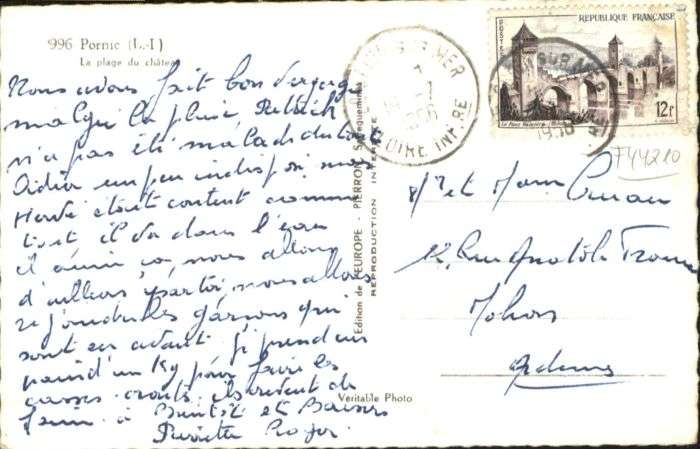 996 Pornic (L.-I)
La plage du château
Nous avons fait bon
malgré la pluie,
n'a pas été malade du tout
un peu indispos mais
Hervé était content comme
tout, il va dans l'eau
il aime ça nous allons
d'ailleurs partir, nous allons
rejoindre les garçons qui
sont en avant. Je prend un
pain d'un Kg pour faire les
casses-croute, ils crèvent de
faim. à Bientôt et Baisers
Roger
Edition de l'EUROPE - PIERRON, Sarreguemines
REPRODUCTION INTERDITE
Véritable Photo
SUR MER
1956
LOIRE INF.RE
REPUBLIQUE FRANÇAISE
POSTES
12f
SUR MER
1956
F44210
Mr et Mme
12, Rue Anatole France
Mohon
Ardennes